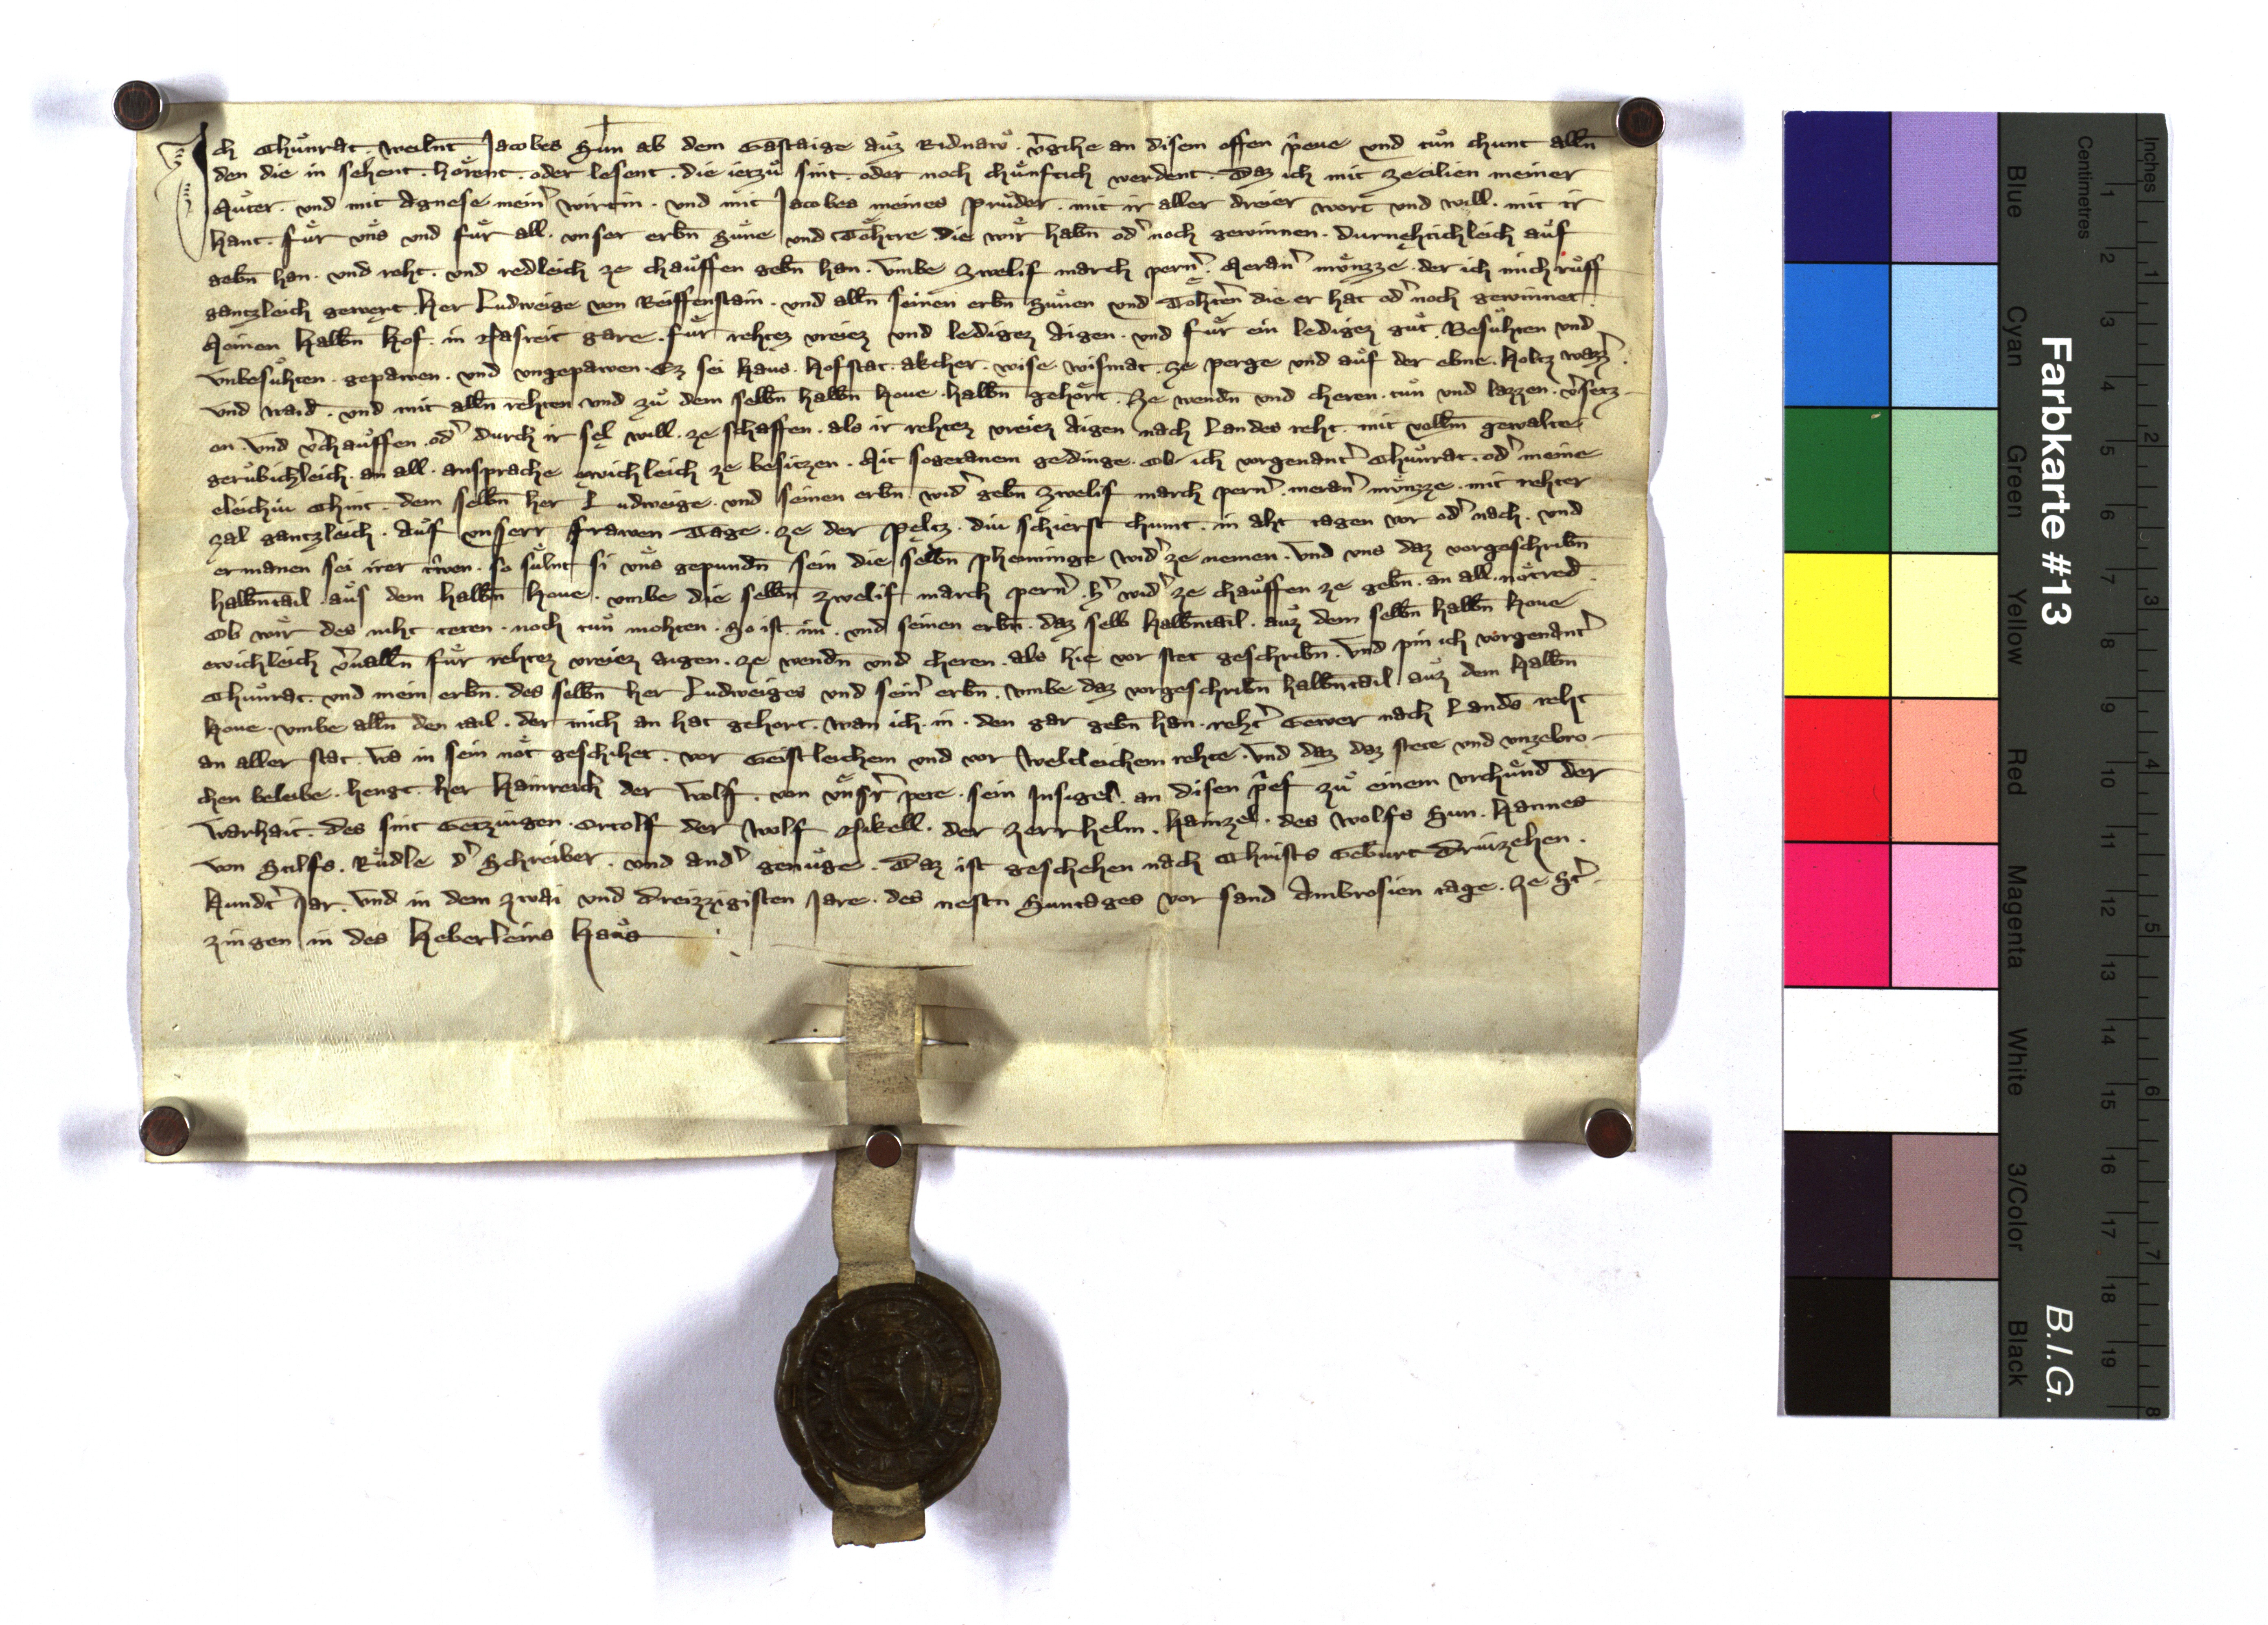 Ich Chuͦnrat . weilnt Jacobes Sun ab dem Gastaige auͦz Ridnawͦ . v̉gihe an disem offen p̂eue vnd tuͦn chunt alln̄
den die in sehent . hoͤrent . oder lesent . die ietzuͦ sint . oder noch chuͤnftich werdent . Daz ich mit Zecilien meiner
Muͦter . vnd mit Agnese mein̉ wirtin . vnd mit Jacobes meines pruͦder . mit ir aller dreier wort vnd will . mit ir
hant . fuͤr vns vnd fuͤr all . vnser erbn̄ Suͤne vnd Toͤhtre die wir habn̄ od̉ noch gewinnen . durnehtichleich auͦf
gebn̄ han . vnd reht . vnd redleich ze chauͦffen gebn̄ han . vmbe zwelif march pern̉ . Meran̉ muͤnzze . der ich mich ruͤff
gantzleich gewert her Ludweige von Reiffenstain . vnd alln̄ seinen erbn̄ Suͤnen vnd Toͤhten̉ die er hat od̉ noch gewinnet .
Meinen halbn̄ hof . in Masreit gare . fuͤr rehtez vreiez vnd ledigez Aigen . vnd fuͤr ein ledigez guͦt . Besuͦhten vnd
vnbesuͦhten . gepawen . vnd vngepawen . Ez sei haus . hofstat . akcher . wise wismat . ze perge vnd auͦf der ebne . holtz wazz̉ .
vnd waid . vnd mit alln̄ rehten vnd zuͦ dem selbn̄ halbn̄ houe . halbn̄ gehoͤrt . Ze wendn̄ vnd cheren . tuͦn vnd lazzen . v̉setz-
en . vnd v̉chauͦffen . od̉ durch ir sel will . ze schaffen . als ir rehtez vreiez Aigen nach Landes reht . mit vollm̄ gewalte
geruͦbichleich . an all . ansprache ewichleich ze besitzen . Mit sogetanem gedinge . Ob ich vorgenant̉ Chuͦnrat . od̉ meine
eleichiu Chint . dem selbn̄ her Ludweige . vnd seinen erbn̄ . wid̉ gebn̄ zwelif march pern̉ . meran̉ muͤnzze . mit rehter
zal gantzleich . Auͦf vnserr frawen Tage . ze der peltz . diu schierst chumt . in aht tagen vor od̉ nach . vnd
ermanen sei irer trwen . so suͤlnt si vns gepundn̄ sein die selbn̄ phenninge wid̉ ze nemen . vnd vns daz vorgeschribn̄
halbn̄tail . auͦs dem halbn̄ houe . vmbe die selbn̄ zwelif march pern̉ . h̉ wid̉ ze chauͦffen ze gebn̄ . an all . noͤtred .
Ob wir des niht teten . noch tuͦn mohten . So ist . im . vnd seinen erbn̄ . daz selb halbn̄tail . auͦz dem selbn̄ halbn̄ houe
ewichleich v̉ualln̄ fuͤr rehtez vreiez aigen . ze wendn̄ vnd cheren . als hie vor stet geschribn̄ . vnd pin ich vorgenant̉
Chuͦnrat . vnd mein erbn̄ . des selbn̄ her Ludweiges vnd sein̉ erbn̄ . vmbe daz vorgeschribn̄ halbn̄tail auͦz dem halbn̄
houe . vmbe alln̄ den tail . der mich an hat gehort . wan ich . in . den gar gebn̄ han . reht̉ Gewer nach Lands reht
an aller stat . wa in sein noͤt geschihet . vor Geistleichem vnd vor weltleichem rehte . vnd daz daz stete vnd vnzebro-
chen beleibe . hengt . her Hainreich der Wolf . von vnsr̉ pete . sein Insigel . an disen p̂ef zuͦ einem vrchuͤnd der
warhait . des sint Getzuigen . Ortolf der Wolf Nikell . der Zerrhelm . Hainzel . des Wolfs Sun . Hannes
von Stilfs . Ruͦdle d̉ Schreiber . vnd and̉ genuͦge . Daz ist geschehen nach Christs Geburt Driuzehen .
hundt̉ Jar . vnd in dem zwai vnd dreizzigisten Jare . des nestn̄ Suntages vor sand Ambrosien tage . ze St̉-
zingen in des Heberleins Hauͦs
Farbkarte #13
B.I.G.
Blue
Cyan
Green
Yellow
Red
Magenta
White
3/Color
Black
Centimetres
Inches
1 2 3 4 5 6 7 8 9 10 11 12 13 14 15 16 17 18 19
1 2 3 4 5 6 7 8